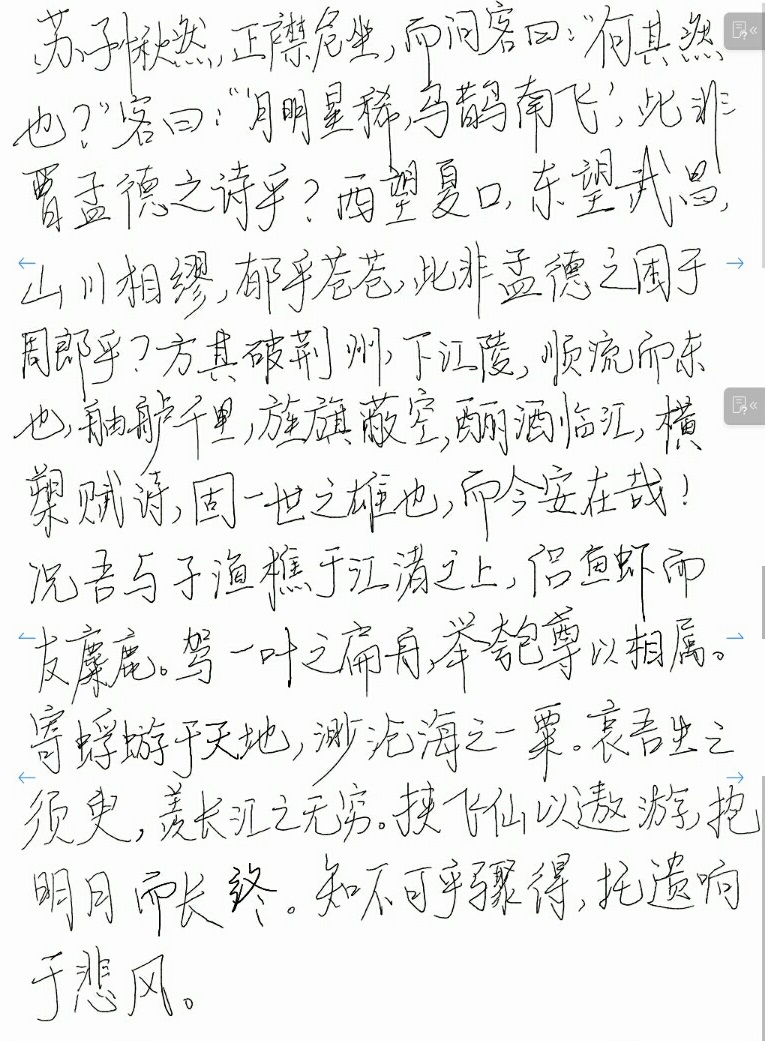 苏子愀然，正襟危坐，而问客曰：“何其然
也？”客曰：“‘月明星稀，乌鹊南飞’，此非
曹孟德之诗乎？西望夏口，东望武昌，
山川相缪，郁乎苍苍，此非孟德之困于
周郎乎？方其破荆州，下江陵，顺流而东
也，舳舻千里，旌旗蔽空，酾酒临江，横
槊赋诗，固一世之雄也，而今安在哉！
况吾与子渔樵于江渚之上，侣鱼虾而
友麋鹿。驾一叶之扁舟，举匏尊以相属。
寄蜉蝣于天地，渺沧海之一粟。哀吾生之
须臾，羡长江之无穷。挟飞仙以遨游，抱
明月而长终。知不可乎骤得，托遗响
于悲风。